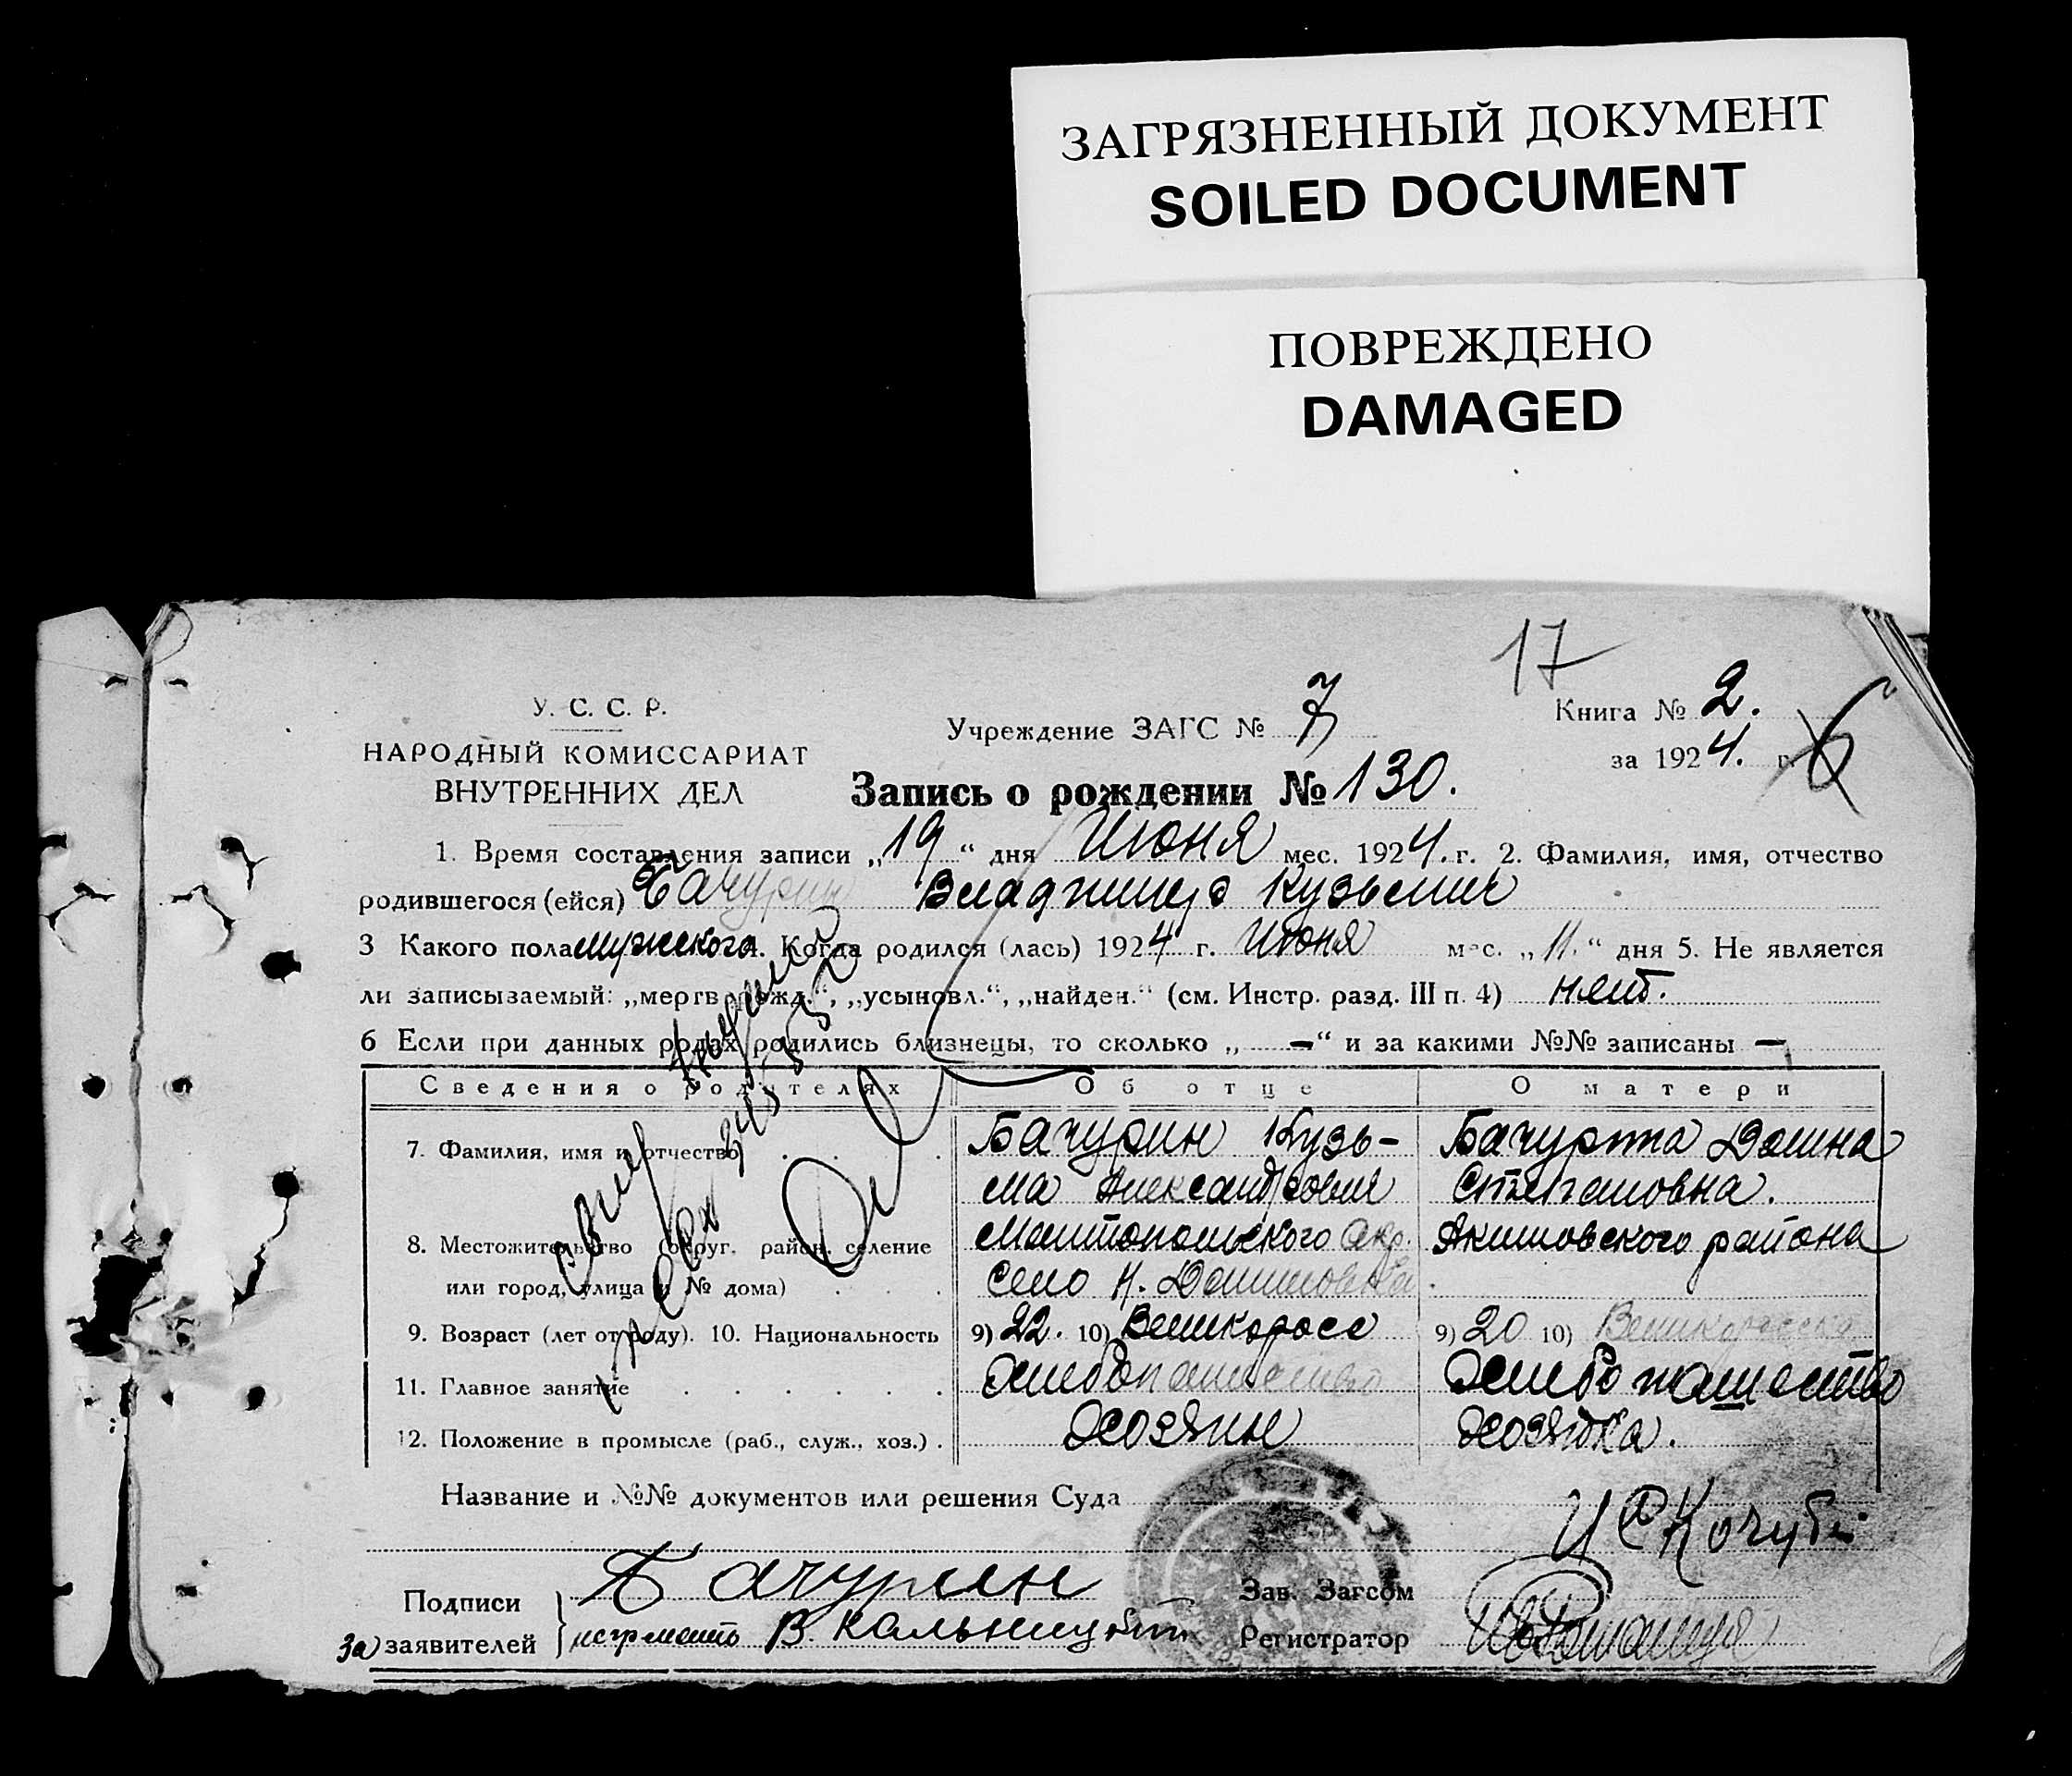 ЗАГРЯЗНЕННЫЙ ДОКУМЕНТ
SOILED DOCUMENT
ПОВРЕЖДЕНО
DAMAGED
17
У. С. С. Р.
НАРОДНЫЙ КОМИССАРИАТ
ВНУТРЕННИХ ДЕЛ
Учреждение ЗАГС № 7
Книга № 2.
за 1924. г. 6
Запись о рождении № 130.
1. Время составления записи „19“ дня Июня мес. 1924. г. 2. Фамилия, имя, отчество
родившегося (ейся) Бачурин Владимир Кузьмич
3 Какого пола мужского 4. Когда родился (лась) 1924 г. Июня мес. „11.“ дня 5. Не является
ли записываемый: „мертворожд.“, „усыновл.“, „найден.“ (см. Инстр. разд. III п. 4) нет.
6 Если при данных родах родились близнецы, то сколько „ — “ и за какими №№ записаны —
Сведения о родителях Об отце О матери
7. Фамилия, имя и отчество Бачурин Кузь- Бачурина Домна
ма Александрович Степановна.
8. Местожительство (округ, район, селение Мелитопольского окр. Акимовского района
или город, улица и № дома) село Н. Даниловка.
9. Возраст (лет от роду). 10. Национальность 9) 22. 10) Великоросс 9) 20 10) Великоросска
11. Главное занятие Хлебопашество Хлебопашество
12. Положение в промысле (раб., служ., хоз.) Хозяин Хозяйка.
Название и №№ документов или решения Суда
Подписи Бачурин Зав. Загсом
За заявителей неграмот. В. Кальницкий Регистратор